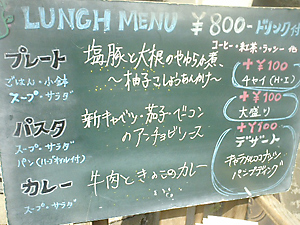 LUNCH MENU ¥800-ドリンク付
コーヒー・紅茶・ラッシー 他
プレート
ごはん・小鉢
スープ・サラダ
塩豚と大根のやわらか煮
〜柚子こしょうあんかけ〜
+¥100
チャイ(H・I)
+¥100
大盛り
パスタ
スープ・サラダ
パン(ハーブオイル付)
新キャベツ・茄子・ベーコン
のアンチョビソース
+¥100
デザート
キャラメルココナッツ
パンプディング
カレー
スープ・サラダ
牛肉ときのこのカレー